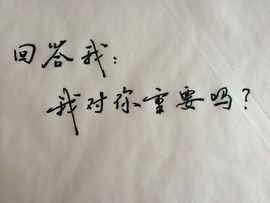 回答我：
我对你重要吗？